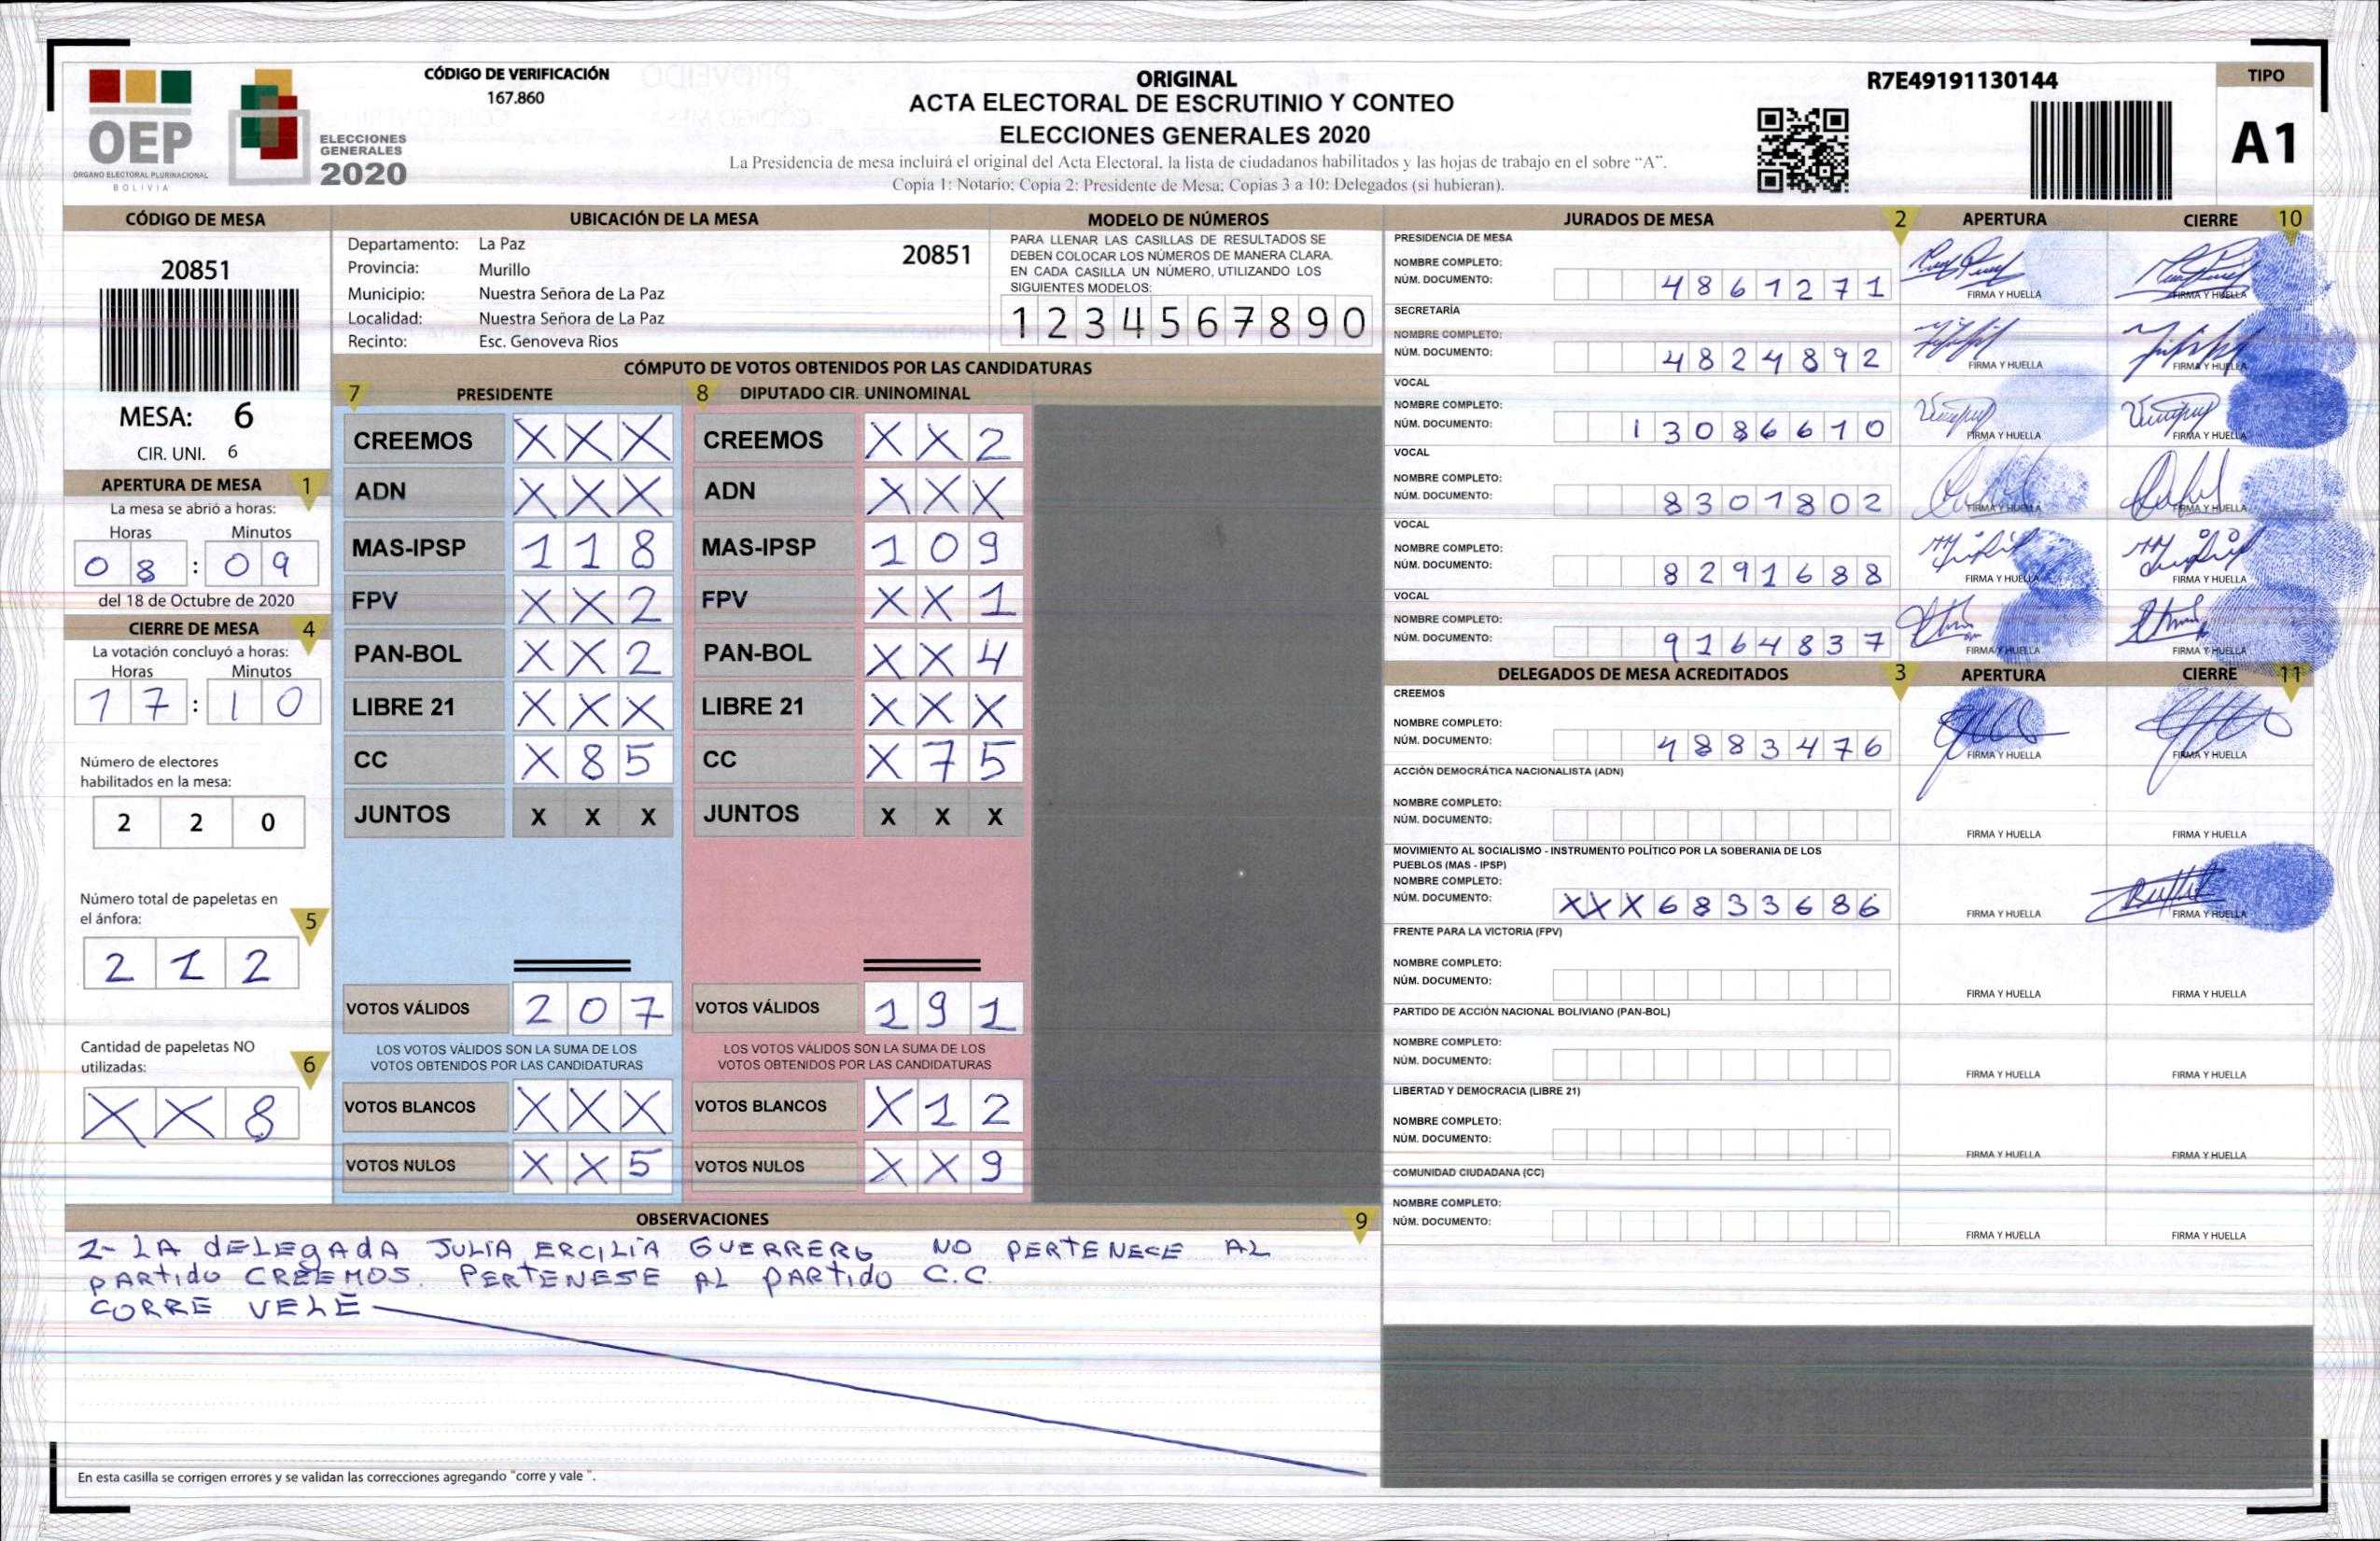 CÓDIGO DE VERIFICACIÓN
167.860
OEP
ÓRGANO ELECTORAL PLURINACIONAL
BOLIVIA
ELECCIONES
GENERALES
2020
ORIGINAL
ACTA ELECTORAL DE ESCRUTINIO Y CONTEO
ELECCIONES GENERALES 2020
La Presidencia de mesa incluirá el original del Acta Electoral, la lista de ciudadanos habilitados y las hojas de trabajo en el sobre “A”.
Copia 1: Notario; Copia 2: Presidente de Mesa; Copias 3 a 10: Delegados (si hubieran).
R7E49191130144
TIPO
A1
CÓDIGO DE MESA
20851
MESA: 6
CIR. UNI. 6
APERTURA DE MESA 1
La mesa se abrió a horas:
Horas Minutos
08 : 09
del 18 de Octubre de 2020
CIERRE DE MESA 4
La votación concluyó a horas:
Horas Minutos
17 : 10
Número de electores
habilitados en la mesa:
2 2 0
Número total de papeletas en
el ánfora: 5
2 1 2
Cantidad de papeletas NO
utilizadas: 6
X X 8
UBICACIÓN DE LA MESA
Departamento: La Paz 20851
Provincia: Murillo
Municipio: Nuestra Señora de La Paz
Localidad: Nuestra Señora de La Paz
Recinto: Esc. Genoveva Rios
MODELO DE NÚMEROS
PARA LLENAR LAS CASILLAS DE RESULTADOS SE
DEBEN COLOCAR LOS NÚMEROS DE MANERA CLARA.
EN CADA CASILLA UN NÚMERO, UTILIZANDO LOS
SIGUIENTES MODELOS:
1 2 3 4 5 6 7 8 9 0
CÓMPUTO DE VOTOS OBTENIDOS POR LAS CANDIDATURAS
7 PRESIDENTE 8 DIPUTADO CIR. UNINOMINAL
CREEMOS X X X CREEMOS X X 2
ADN X X X ADN X X X
MAS-IPSP 1 1 8 MAS-IPSP 1 0 9
FPV X X 2 FPV X X 1
PAN-BOL X X 2 PAN-BOL X X 4
LIBRE 21 X X X LIBRE 21 X X X
CC X 8 5 CC X 7 5
JUNTOS X X X JUNTOS X X X
VOTOS VÁLIDOS 2 0 7 VOTOS VÁLIDOS 1 9 1
LOS VOTOS VÁLIDOS SON LA SUMA DE LOS LOS VOTOS VÁLIDOS SON LA SUMA DE LOS
VOTOS OBTENIDOS POR LAS CANDIDATURAS VOTOS OBTENIDOS POR LAS CANDIDATURAS
VOTOS BLANCOS X X X VOTOS BLANCOS X 1 2
VOTOS NULOS X X 5 VOTOS NULOS X X 9
OBSERVACIONES 9
2- LA dELEgAdA JULIA ERCILIA GUERRERO NO PERTENECE AL
PARTido CREEMOS. PERTENESE AL PARTido C.C.
CORRE VELE
En esta casilla se corrigen errores y se validan las correcciones agregando "corre y vale ".
JURADOS DE MESA 2 APERTURA CIERRE 10
PRESIDENCIA DE MESA
NOMBRE COMPLETO:
NÚM. DOCUMENTO: 4861271 FIRMA Y HUELLA FIRMA Y HUELLA
SECRETARÍA
NOMBRE COMPLETO:
NÚM. DOCUMENTO: 4824892 FIRMA Y HUELLA FIRMA Y HUELLA
VOCAL
NOMBRE COMPLETO:
NÚM. DOCUMENTO: 13086610 FIRMA Y HUELLA FIRMA Y HUELLA
VOCAL
NOMBRE COMPLETO:
NÚM. DOCUMENTO: 8301802 FIRMA Y HUELLA FIRMA Y HUELLA
VOCAL
NOMBRE COMPLETO:
NÚM. DOCUMENTO: 8291688 FIRMA Y HUELLA FIRMA Y HUELLA
VOCAL
NOMBRE COMPLETO:
NÚM. DOCUMENTO: 9164837 FIRMA Y HUELLA FIRMA Y HUELLA
DELEGADOS DE MESA ACREDITADOS 3 APERTURA CIERRE 11
CREEMOS
NOMBRE COMPLETO:
NÚM. DOCUMENTO: 4883476 FIRMA Y HUELLA FIRMA Y HUELLA
ACCIÓN DEMOCRÁTICA NACIONALISTA (ADN)
NOMBRE COMPLETO:
NÚM. DOCUMENTO: FIRMA Y HUELLA FIRMA Y HUELLA
MOVIMIENTO AL SOCIALISMO - INSTRUMENTO POLÍTICO POR LA SOBERANIA DE LOS
PUEBLOS (MAS - IPSP)
NOMBRE COMPLETO:
NÚM. DOCUMENTO: XXX6833686 FIRMA Y HUELLA FIRMA Y HUELLA
FRENTE PARA LA VICTORIA (FPV)
NOMBRE COMPLETO:
NÚM. DOCUMENTO: FIRMA Y HUELLA FIRMA Y HUELLA
PARTIDO DE ACCIÓN NACIONAL BOLIVIANO (PAN-BOL)
NOMBRE COMPLETO:
NÚM. DOCUMENTO: FIRMA Y HUELLA FIRMA Y HUELLA
LIBERTAD Y DEMOCRACIA (LIBRE 21)
NOMBRE COMPLETO:
NÚM. DOCUMENTO: FIRMA Y HUELLA FIRMA Y HUELLA
COMUNIDAD CIUDADANA (CC)
NOMBRE COMPLETO:
NÚM. DOCUMENTO: FIRMA Y HUELLA FIRMA Y HUELLA